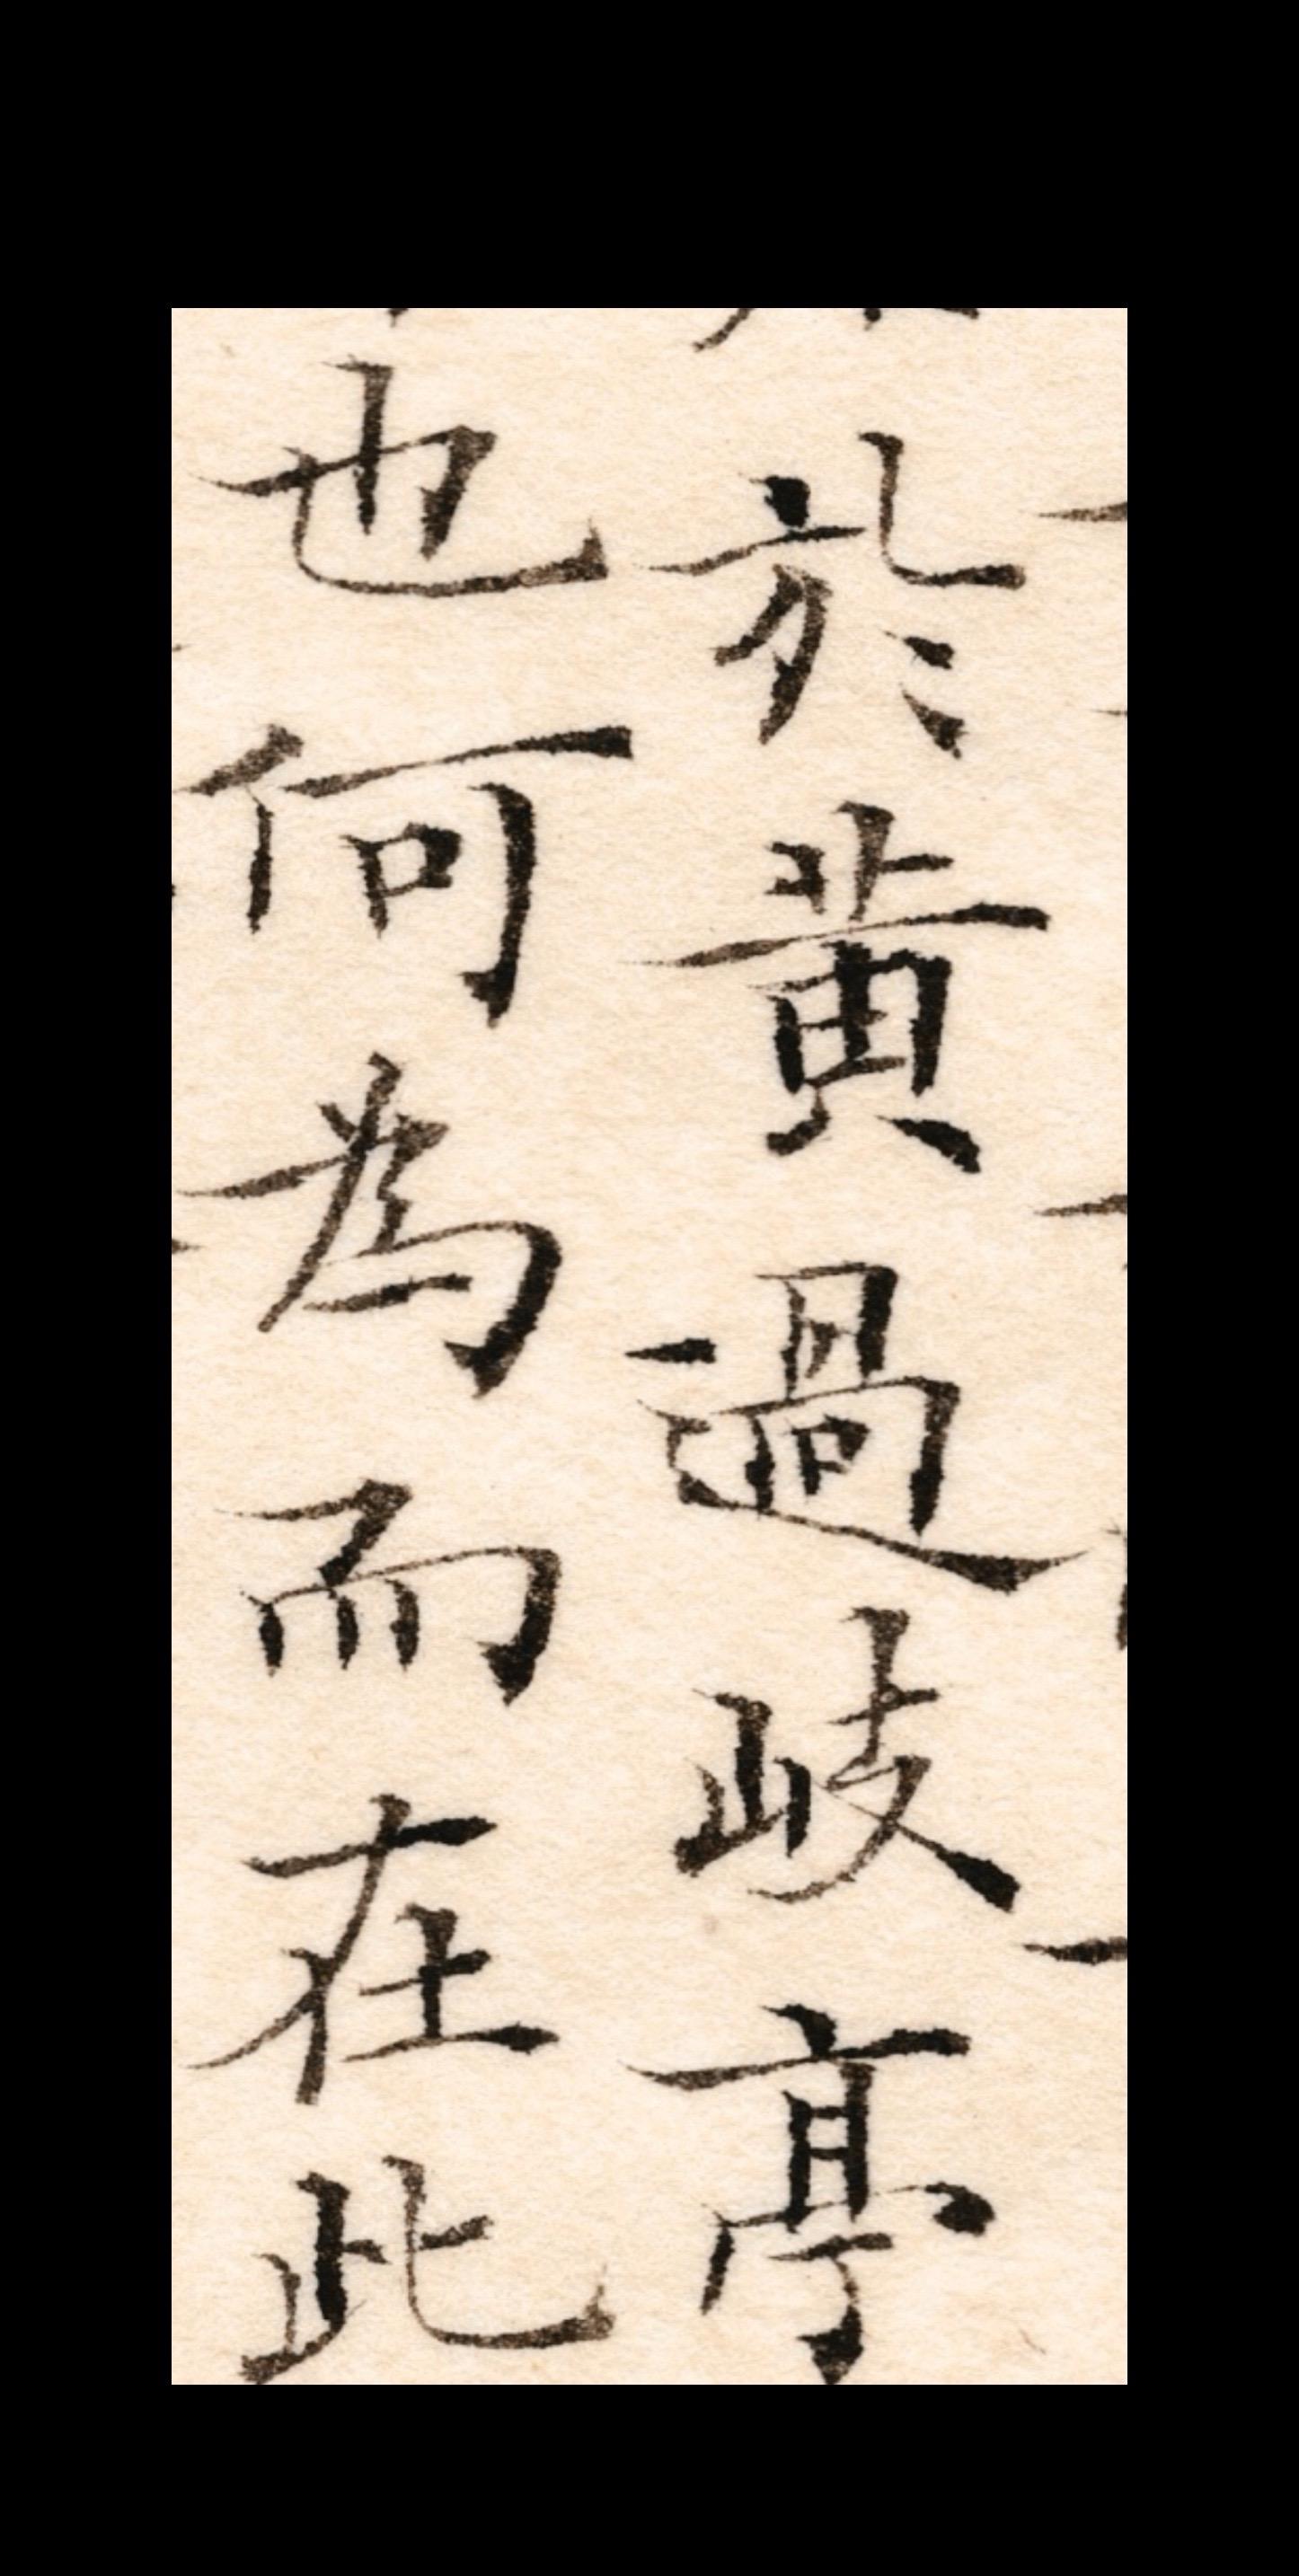 於黄過岐亭
也何為而在此